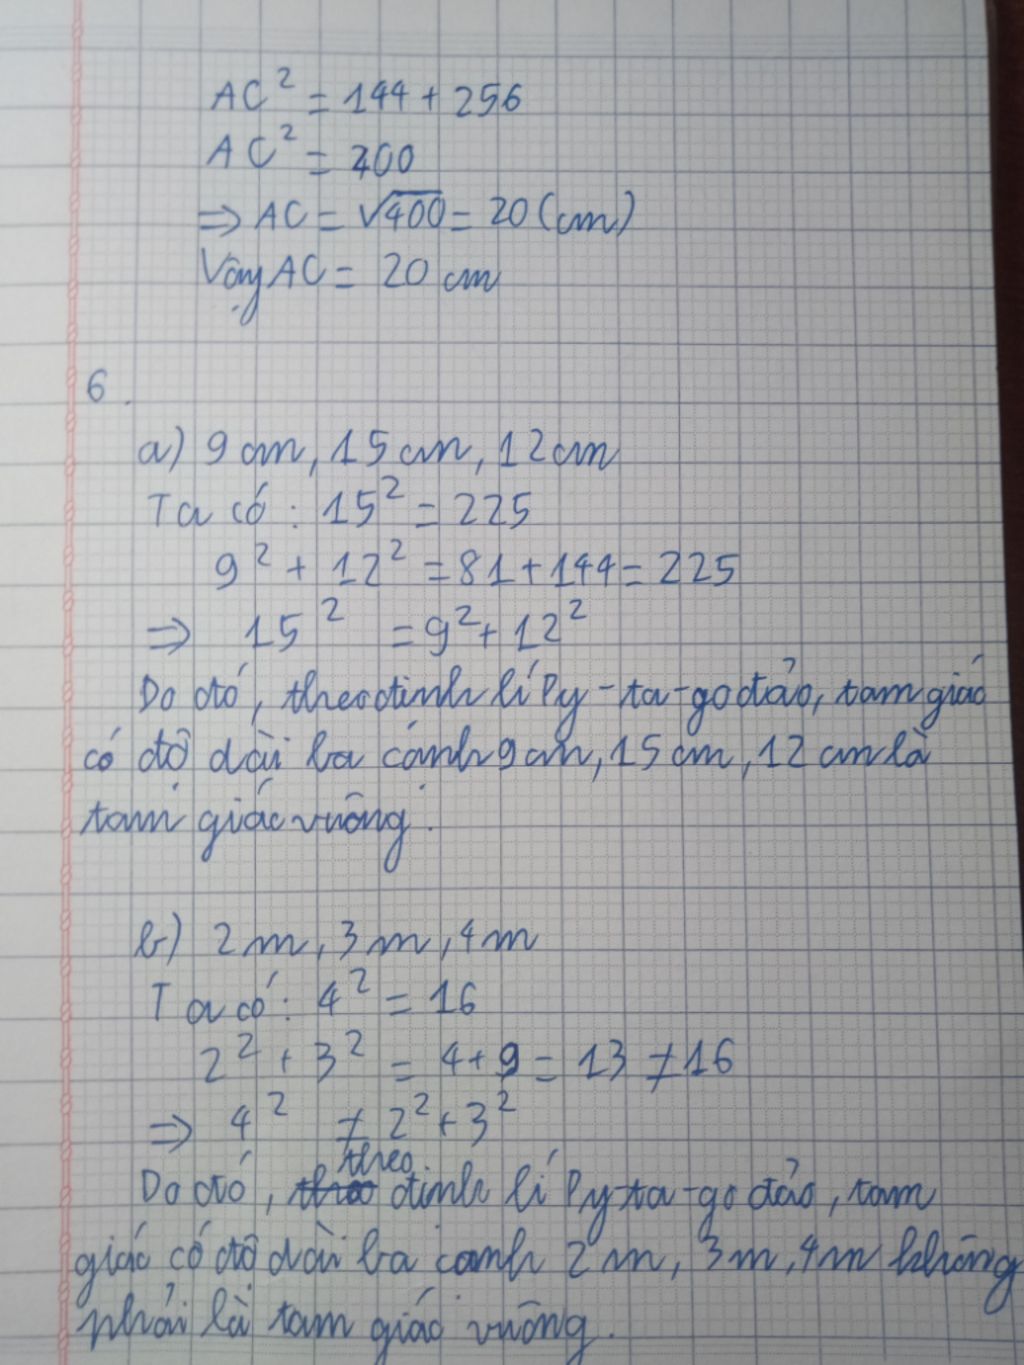 AC² = 144 + 256
AC² = 400
⇒ AC = √400 = 20 (cm)
Vậy AC = 20 cm
6.
a) 9 cm, 15 cm, 12 cm
Ta có : 15² = 225
9² + 12² = 81 + 144 = 225
⇒ 15² = 9² + 12²
Do đó, theo định lí Py-ta-go đảo, tam giác
có độ dài ba cạnh 9 cm, 15 cm, 12 cm là
tam giác vuông.
b) 2 m, 3 m, 4 m
Ta có : 4² = 16
2² + 3² = 4 + 9 = 13 ≠ 16
⇒ 4² ≠ 2² + 3²
Do đó, theo định lí Py-ta-go đảo, tam
giác có độ dài ba cạnh 2 m, 3 m, 4 m không
phải là tam giác vuông.